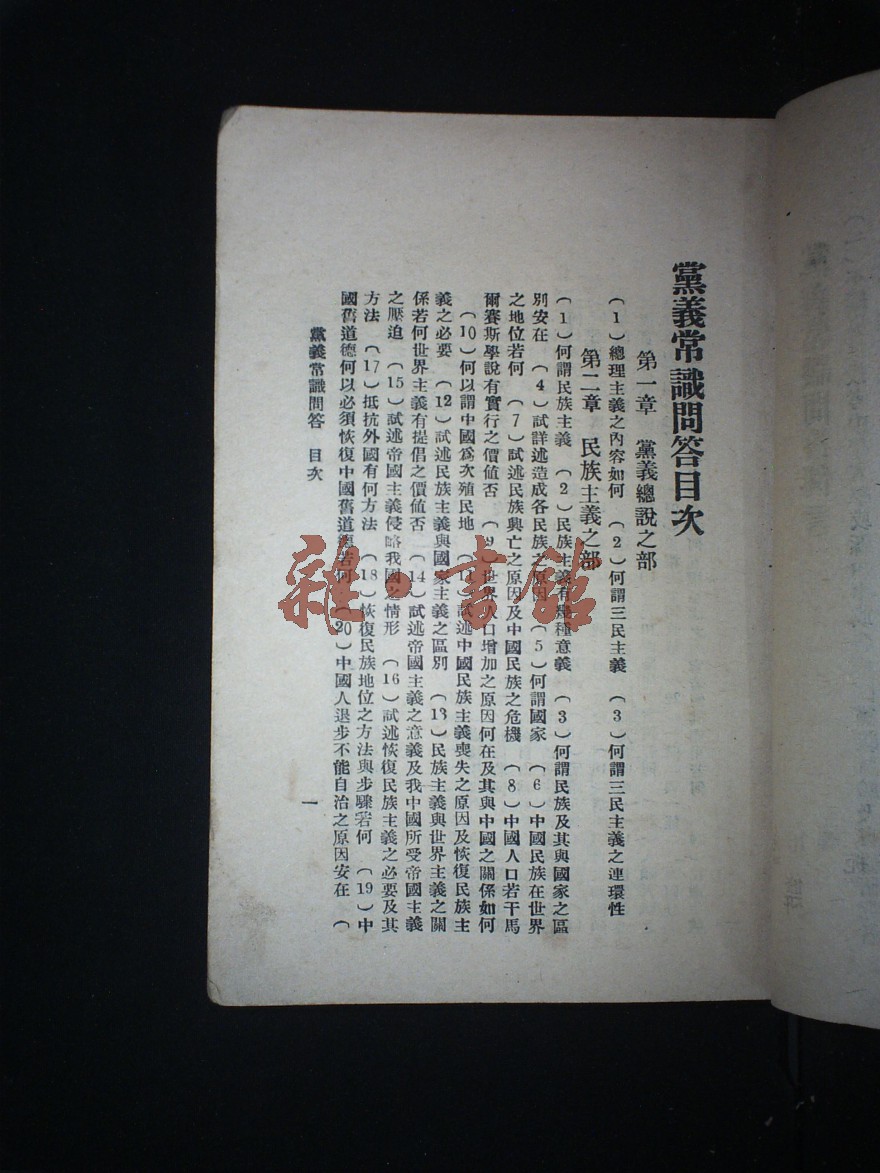 黨義常識問答目次
第一章　黨義總說之部
(1)總理主義之內容如何　(2)何謂三民主義　(3)何謂三民主義之連環性
第二章　民族主義之部
(1)何謂民族主義　(2)民族主義有幾種意義　(3)何謂民族及其與國家之區
別安在　(4)試詳述造成各民族之原因　(5)何謂國家　(6)中國民族在世界
之地位若何　(7)試述民族興亡之原因及中國民族之危機　(8)中國人口若干馬
爾賽斯學說有實行之價值否　(9)世界人口增加之原因何在及其與中國之關係如何
(10)何以謂中國爲次殖民地　(11)試述中國民族主義喪失之原因及恢復民族主
義之必要　(12)試述民族主義與國家主義之區別　(13)民族主義與世界主義之關
係若何世界主義有提倡之價值否　(14)試述帝國主義之意義及我中國所受帝國主義
之壓迫　(15)試述帝國主義侵略我國之情形　(16)試述恢復民族主義之必要及其
方法　(17)抵抗外國有何方法　(18)恢復民族地位之方法與步驟若何　(19)中
國舊道德何以必須恢復中國舊道德若何　(20)中國人退步不能自治之原因安在　(
黨義常識問答　目次
一
雜·書館